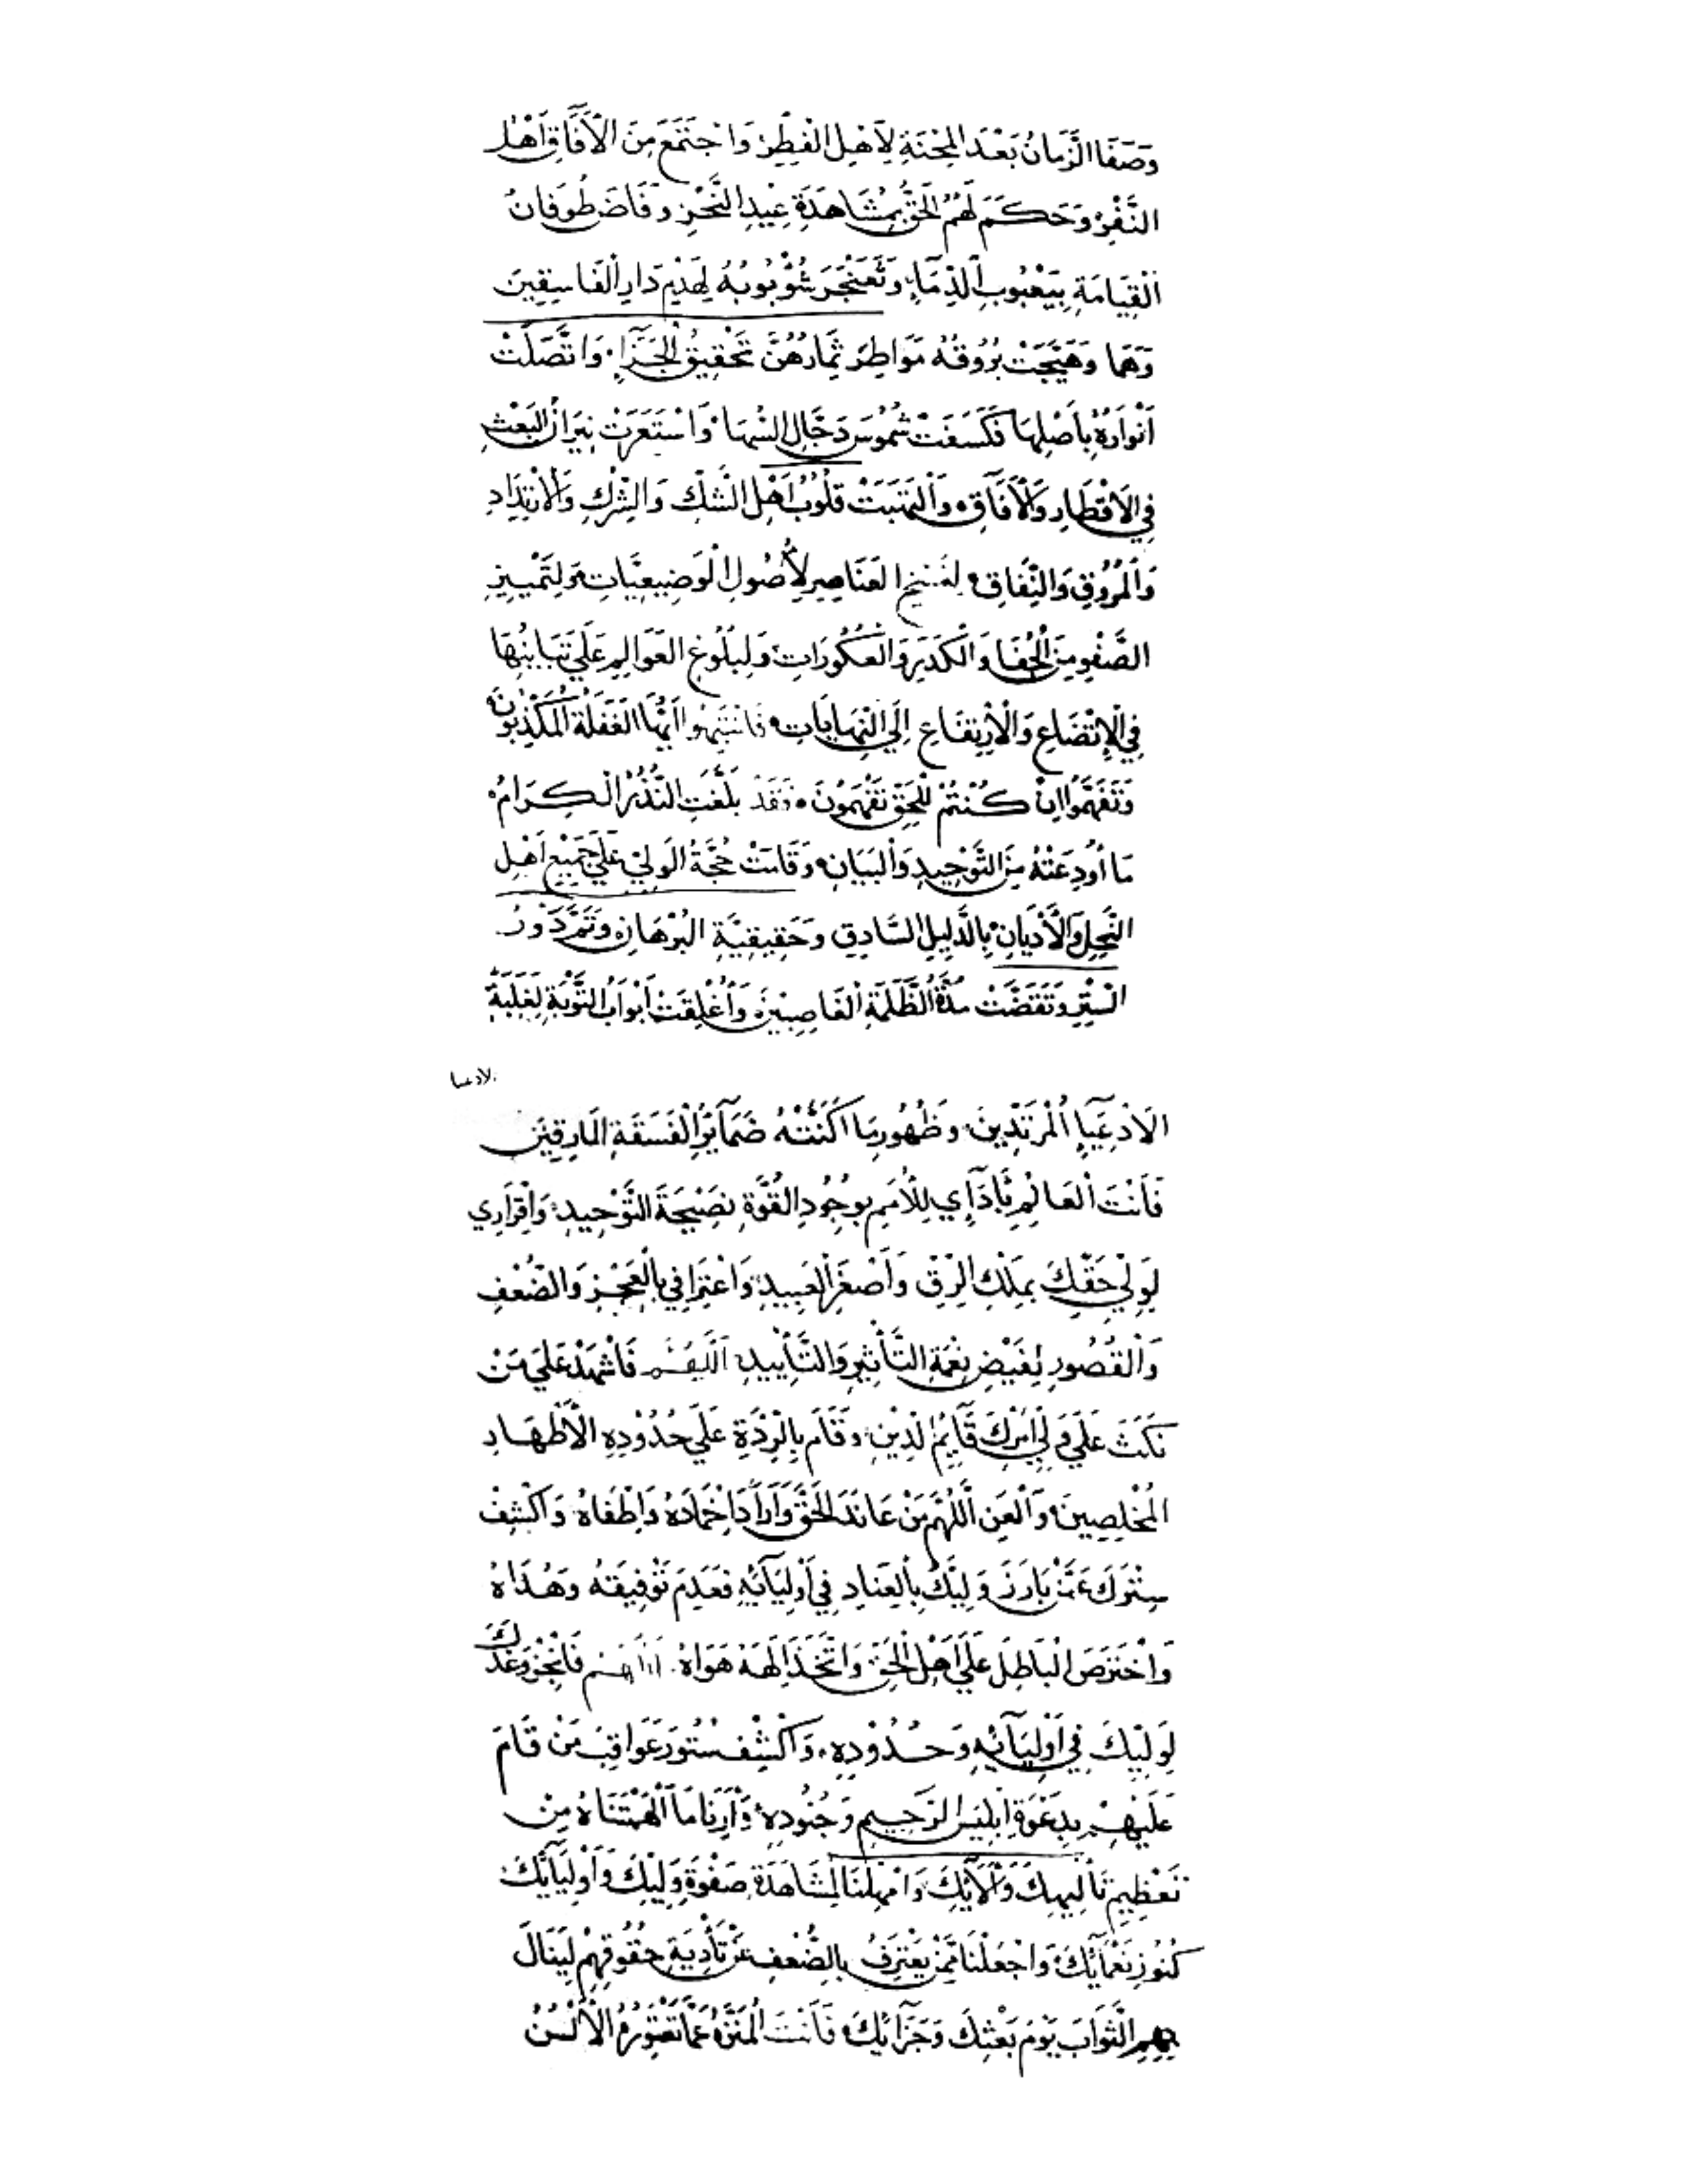 وَصَفَا الزَّمَانُ بَعْدَ المِحْنَةِ لِأَهْلِ الفِطَرْ وَاجْتَمَعَ مِنَ الْأَفَاقِ أَهْلُ
النَّفْرْ وَحَكَمَ لَهُمُ الحَقُّ بِمُشَاهَدَةِ عِيْدِ النَّحْرِ وَفَاضَ طُوفَانُ
القِيَامَةِ بِيَعْبُوبِ الدِّمَآءِ وَتَعَنْجَرَ شُؤْبُوبُهُ لِهَدْمِ دَارِ الْفَاسِقِينَ
وَهَمَا وَهَيَّجَتْ بُرُوقُهُ مَوَاطِرَ ثِمَارُهُنَّ تَحْقِيقُ الْجَزَآءِ وَاتَّصَلَتْ
أَنْوَارُهُ بِأَصْلِهَا فَكَسَفَتْ شُمُوسَ دَجَّالِ السُّهَا وَاسْتَعَرَتْ نِيرَانُ البَعْثِ
فِي الأَقْطَارِ وَالْآفَاقِ وَالْتَهَبَتْ قُلُوبُ أَهْلِ الشَّكِّ وَالشِّرْكِ وَالْارْتِدَادِ
وَالمُرُوقِ وَالنِّفَاقِ العَنَاصِرِ لِأُصُولِ الْوَضِيعِيَّاتِ وَلِتَمْيِيزِ
الصَّفْوِ مِنَ الْجُفَا وَالْكَدَرِ وَالْعَكُورَاتِ وَلِبُلُوغِ العَوَالِمِ عَلَى تَبَايُنِهَا
فِي الْاِتْضَاعِ وَالْاِرْتِفَاعِ إِلَى النِّهَايَاتِ فَانْتَبِهُوا أَيُّهَا الغَفَلَةُ الْمُكَذِّبُونَ
وَتَفَهَّمُوا إِنْ كُنْتُمْ لِلْحَقِّ تَفْهَمُونَ فَقَدْ بَلَّغَتِ النُّذُرُ الْكِرَامُ
مَا أُودِعَتْهُ مِنَ التَّوْحِيدِ وَالْبَيَانِ وَقَامَتْ حُجَّةُ الوَلِيِّ عَلَى جَمِيْعِ أَهْلِ
النِّحَلِ وَالْأَدْيَانِ بِالدَّلِيلِ السَّادِقِ وَحَقِيقِيَّةِ البُرْهَانِ وَتَمَّ دَوْرُ
السِّتْرِ وَتَقَضَّتْ مُدَّةُ الظَّلَمَةِ الْغَاصِبِيْنَ وَأُغْلِقَتْ أَبْوَابُ التَّوْبَةِ لِغَلَبَةِ
الادعيا
الأَدْعِيَآءِ الْمُرْتَدِّينَ وَظُهُورِ مَا أَكَنَّتْهُ ضَمَآئِرُ الْفَسَقَةِ الْمَارِقِيْنَ
فَأَنْتَ الْعَالِمُ بِأَدَآءِي لِلْأُمَمِ بِوُجُودِ الْقُوَّةِ نَصِيْحَةَ التَّوْحِيدِ وَإِقْرَارِي
لِوَلِيِّ حَقِّكَ بِمِلْكِ الرِّقِّ وَأَصْغَرِ الْعَبِيدِ وَاعْتِرَافِي بِالْعَجْزِ وَالضُّعْفِ
وَالْقُصُورِ لِغَيْضِ نِعْمَةِ التَّأْثِيرِ وَالتَّأْيِيدِ اللَّهُمَّ فَاشْهَدْ عَلَى مَنْ
نَكَثَ عَلَى وَلِيِّ أَمْرِكَ قَآيِمِ الدِّيْنِ وَقَامَ بِالرِّدَّةِ عَلَى حُدُوْدِهِ الْأَطْهَارِ
الْمُخْلِصِينَ وَالْعَنِ اللَّهُمَّ مَنْ عَانَدَ الحَقَّ وَأَرَادَ إِخْمَادَهُ وَإِطْفَاهُ وَاكْشِفْ
سِتْرَكَ عَمَّنْ بَارَزَ وَلِيَّكَ بِالْعِنَادِ فِي أَوْلِيَآئِهِ فَعَدِمَ تَوْفِيقَهُ وَهُدَاهُ
وَاخْتَرَصَ الْبَاطِلَ عَلَى أَهْلِ الْحَقِّ وَاتَّخَذَ إِلَهَهُ هَوَاهُ اللهم فَأَنْجِزْ وَعْدَكَ
لِوَلِيِّكَ فِي أَوْلِيَآئِهِ وَحُدُوْدِهِ وَاكْشِفْ سُتُورَ عَوَاقِبِ مَنْ قَامَ
عَلَيْهِمْ بِدَعْوَةِ إِبْلِيسَ الرَّجِيمِ وَجُنُودِهِ وَأَرِنَا مَا أَلْهَمْتَنَاهُ مِنْ
تَعْظِيمِ تَأْلِيهِكَ وَآلَآئِكَ وَامْهِلْنَا لِمُشَاهَدَةِ صَفْوَةِ وَلِيِّكَ وَأَوْلِيَآئِكَ
كُنُوزِ نَعْمَآئِكَ وَاجْعَلْنَا مِمَّنْ يَعْتَرِفُ بِالضُّعْفِ عَنْ تَأْدِيَةِ حُقُوقِهِمْ لِيَنَالَ
بِهِمِ الثَّوَابَ يَوْمَ بَعْثِكَ وَجَزَآئِكَ فَأَنْتَ الْمُنَزَّهُ عَمَّا تَعْتَوِرُهُ الْأَلْسُنُ